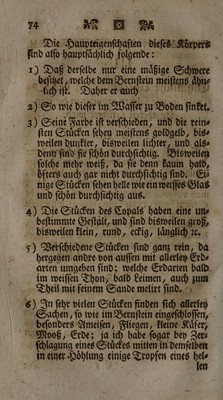 74
Die Haupteigenschaften dieses Körpers
sind also hauptsächlich folgende :
1) Daß derselbe nur eine mäßige Schwere
besitzet, welche dem Bernstein meistens ähn-
lich ist. Daher er auch
2) So wie dieser im Wasser zu Boden sinket.
3) Seine Farbe ist verschieden, und die rein-
sten Stücken sehen meistens goldgelb, bis-
weilen dunkler, bisweilen lichter, und als-
denn sind sie schön durchsichtig. Bisweilen
solche mehr weiß, da sie denn kaum halb,
öfters auch gar nicht durchsichtig sind. Ei-
nige Stücken sehen helle wie ein weisses Glas
und schön durchsichtig aus.
4) Die Stücken des Copals haben eine un-
bestimmte Gestalt, und sind bisweilen groß,
bisweilen klein, rund, eckig, länglich ꝛc.
5) Verschiedene Stücken sind ganz rein, da
hergegen andre von aussen mit allerley Erd-
arten umgeben sind; welche Erdarten bald
im weissen Thon, bald Leimen, auch zum
Theil mit feinem Sande melirt sind.
6) In sehr vielen Stücken finden sich allerley
Sachen, so wie im Bernstein eingeschlossen,
besonders Ameisen, Fliegen, kleine Käfer,
Mooß, Erde; ja ich habe sogar bey Zer-
schlagung eines Stückes mitten in demselben
in einer Höhlung einige Tropfen eines hel-
len